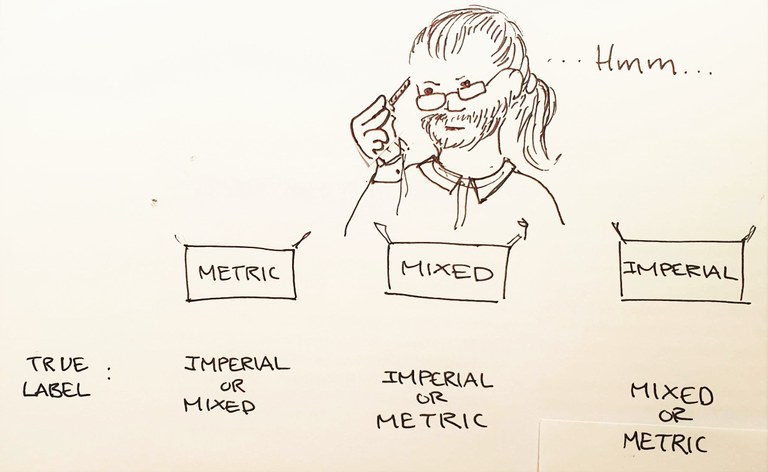 ... Hmm...
METRIC
MIXED
IMPERIAL
TRUE
LABEL :
IMPERIAL
OR
MIXED
IMPERIAL
OR
METRIC
MIXED
OR
METRIC